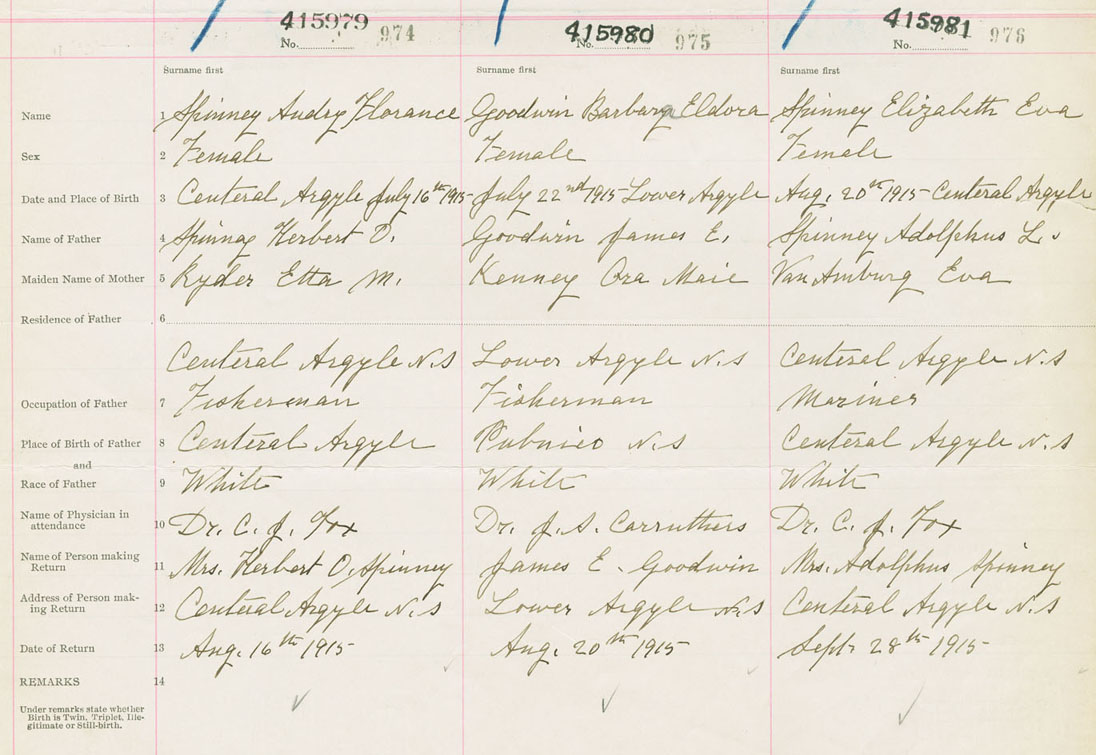 415979 415980 415981
No. 974 No. 975 No. 976
Surname first Surname first Surname first
Name 1 Spinney Audry Florance Goodwin Barbara Eldora Spinney Elizabeth Eva
Sex 2 Female Female Female
Date and Place of Birth 3 Centeral Argyle July 16th 1915 July 22nd 1915 Lower Argyle Aug. 20th 1915 - Centeral Argyle
Name of Father 4 Spinney Herbert O. Goodwin James E. Spinney Adolphus L.
Maiden Name of Mother 5 Ryder Etta M. Kenney Ora Maie Van Amburg Eva
Residence of Father 6
Centeral Argyle N.S Lower Argyle N.S Centeral Argyle N.S
Occupation of Father 7 Fisherman Fisherman Mariner
Place of Birth of Father 8 Centeral Argyle Pubnico N.S Centeral Argyle N.S
and
Race of Father 9 White White White
Name of Physician in
attendance 10 Dr. C. J. Fox Dr. J. A. Carruthers Dr. C. J. Fox
Name of Person making
Return 11 Mrs. Herbert O. Spinney James E. Goodwin Mrs. Adolphus Spinney
Address of Person mak-
ing Return 12 Centeral Argyle N.S Lower Argyle N.S Centeral Argyle N.S
Date of Return 13 Aug. 16th 1915 Aug. 20th 1915 Sept 28th 1915
REMARKS 14
Under remarks state whether
Birth is Twin, Triplet, Ille-
gitimate or Still-birth.